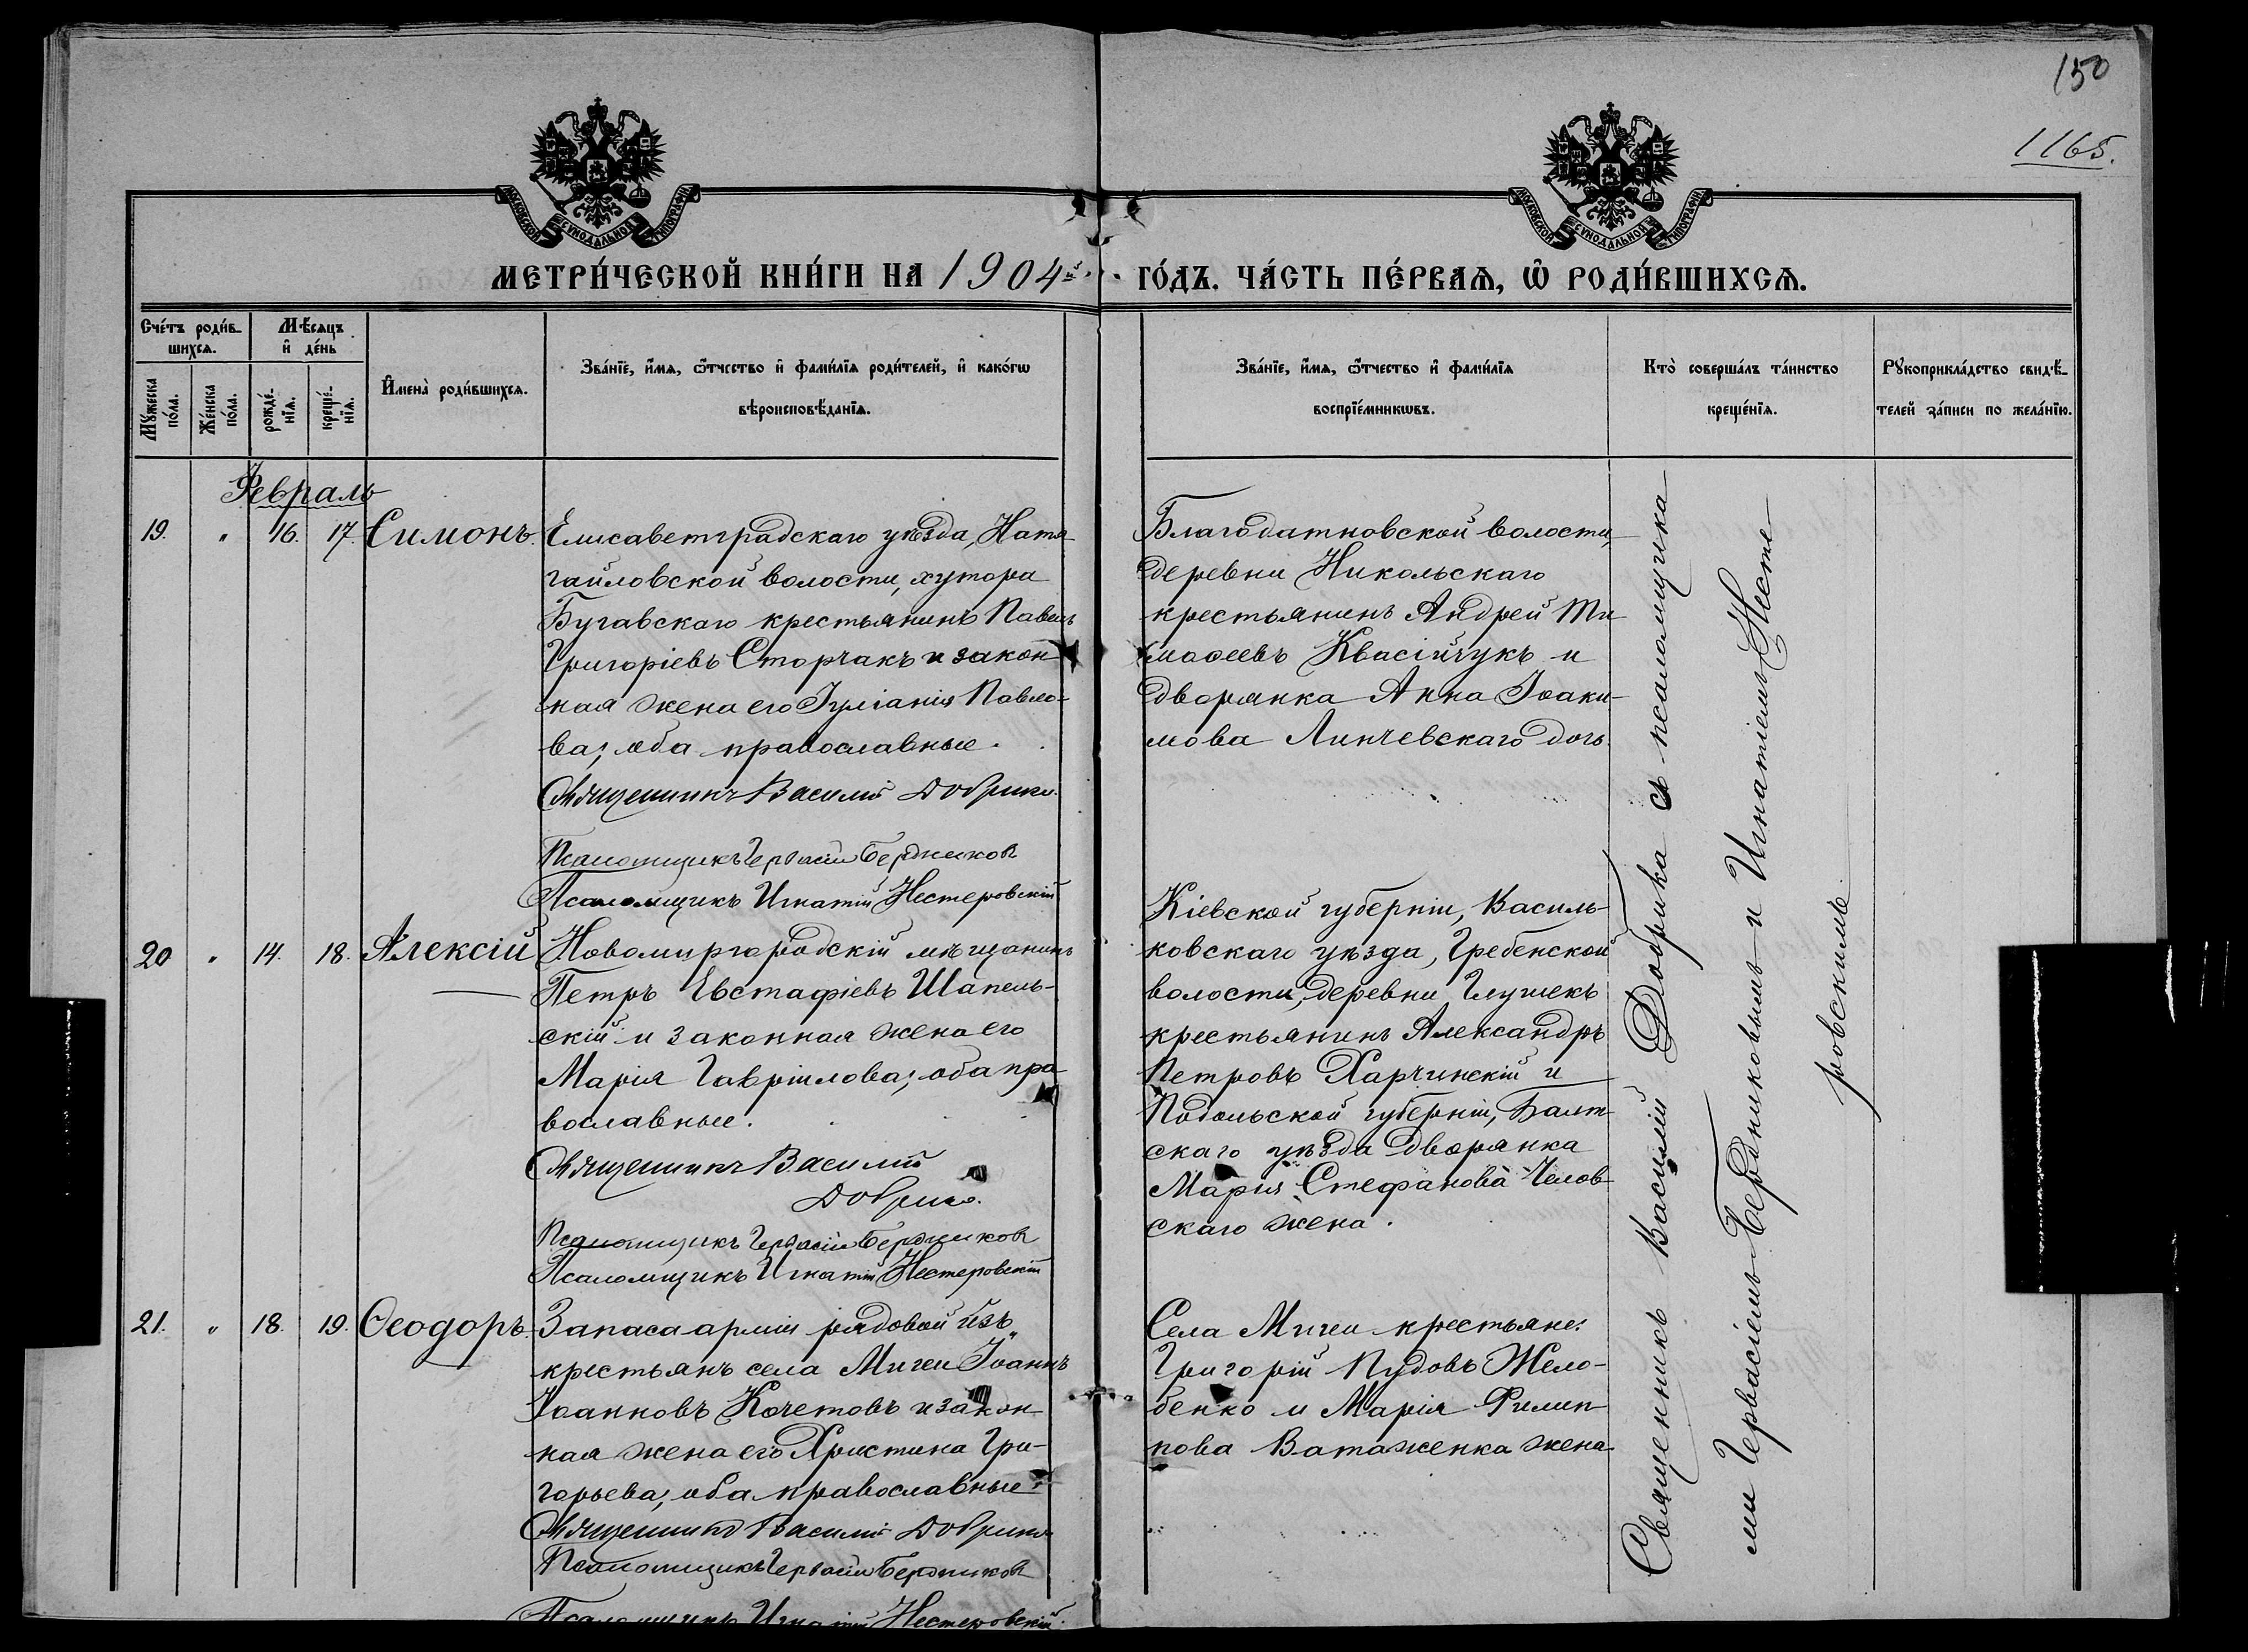 150
1165.
МОСКОВСКОЙ СѴНОДАЛЬНОЙ ТИПОГРАФІИ
МОСКОВСКОЙ СѴНОДАЛЬНОЙ ТИПОГРАФІИ
МЕТРИ́ЧЕСКОЙ КНИ́ГИ НА 1904й
ГО́ДЪ. ЧА́СТЬ ПЕ́РВАѦ, Ѽ РОДИ́ВШИХСѦ.
Сче́тъ роди́в-
шихсѧ.
Мѣ́сѧцъ
и҆ де́нь
Мꙋ́жеска
по́ла.
Же́нска
по́ла.
рожде́-
нїѧ.
креще́-
нїѧ.
И҆мена̀ роди́вшихсѧ.
Зва́нїе, и҆́мѧ, ѻ҆́тчество и҆ фами́лїѧ роди́телей, и҆ како́гѡ
вѣроисповѣ́данїѧ.
Зва́нїе, и҆́мѧ, ѻ҆́тчество и҆ фами́лїѧ
воспрїе́мникѡвъ.
Кто̀ соверша́лъ та́инство
креще́нїѧ.
Рꙋкоприкла́дство свидѣ́-
телей за́писи по жела́нїю.
Февраль
19. " 16. 17. Симонъ. Елисаветградскаго уѣзда, Ната-
гайловской волости, хутора
Бугавскаго крестьянинъ Павелъ
Григоріевъ Сторчакъ и закон-
ная жена его Іуліанія Павло-
ва; оба православные.
Священникъ Василій Добрика.
Псаломщикъ Гервасій Бердниковъ
Псаломщикъ Игнатій Нестеровскій
Благодатновской волости,
деревни Никольскаго
крестьянинъ Андрей Ти-
моѳеевъ Квасійчукъ и
дворянка Анна Іоаки-
мова Линчевскаго дочь.
20 " 14. 18. Алексій Новомиргородскій мѣщанинъ
Петръ Евстафіевъ Шапель-
скій и законная жена его
Марія Гавріилова; оба пра-
вославные.
Священникъ Василій
Добрика.
Псаломщикъ Гервасій Бердниковъ
Псаломщикъ Игнатій Нестеровскій
Кіевской губерніи, Василь-
ковскаго уѣзда, Гребенской
волости, деревни Глушекъ
крестьянинъ Александръ
Петровъ Харчинскій и
Подольской губерніи, Балт-
скаго уѣзда дворянка
Марія Стефанова Челов-
скаго жена.
21. " 18. 19. Ѳеодоръ. Запаса арміи рядовой изъ
крестьянъ села Мигеи Іоаннъ
Іоанновъ Кочетовъ и закон-
ная жена его Христина Гри-
горьева; оба православные.
Священникъ Василій Добрика
Псаломщикъ Гервасій Бердниковъ
Псаломщикъ Игнатій Нестеровскій.
Села Мигеи крестьяне:
Григорій Пудовъ Жело-
бенко и Марія Филип-
пова Ватаженка жена
Священникъ Василій Добрика съ псаломщика-
ми Гервасіемъ Бердниковымъ и Игнатіемъ Несте-
ровскимъ.